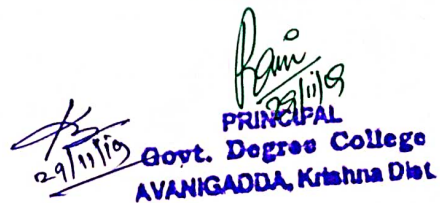 Rani
29/11/19
PRINCIPAL
29/11/19 Govt. Degree College
AVANIGADDA, Krishna Dist.